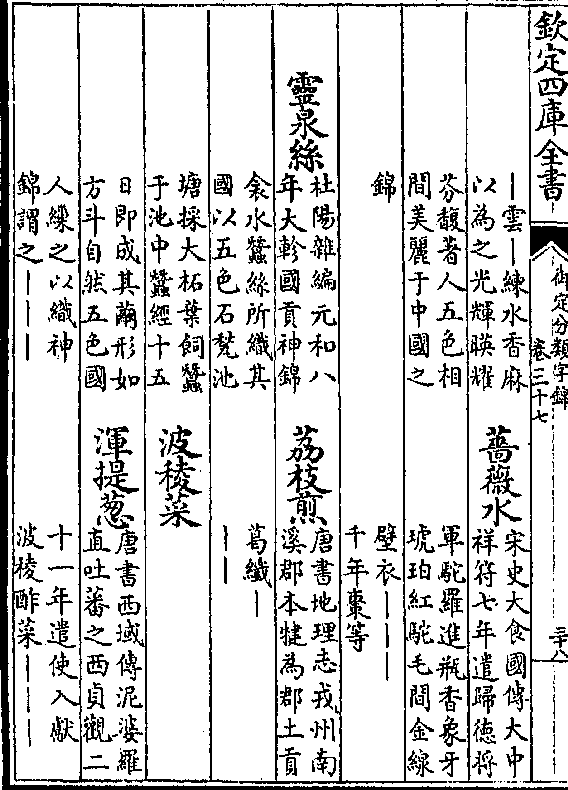 欽定四庫全書
御定分類字錦
卷三十七
二十八
｜雲｜練水香麻
以為之光輝暎耀
芬馥著人五色相
間美麗于中國之
錦
薔薇水
宋史大食國傳大中
祥符七年遣歸德將
軍駝羅進瓶香象牙
琥珀紅駝毛間金線
壁衣｜｜｜
千年棗等
靈泉絲
杜陽雜編元和八
年大軫國貢神錦
衾水蠶絲所織其
國以五色石甃池
塘採大柘葉飼蠶
于池中蠶經十五
日即成其繭形如
方斗自然五色國
人繰之以織神
錦謂之｜｜｜
荔枝煎
唐書地理志戎州南
溪郡本犍為郡土貢
葛纖｜
｜｜
波稜菜
渾提葱
唐書西域傳泥婆羅
直吐蕃之西貞觀二
十一年遣使入獻
波棱酢菜｜｜｜